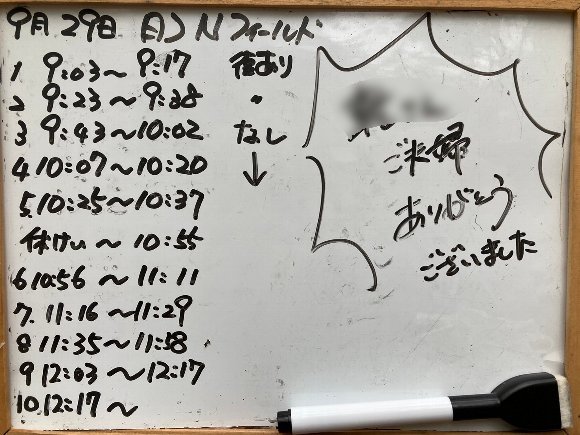 9月29日 日) Nフィールド
1 9:03～9:17 街あり
2 9:23～9:38 〃
3 9:43～10:02 なし
4 10:07～10:20 ↓
5. 10:25～10:37
休けい～10:55
6 10:56～11:11
7. 11:16～11:29
8 11:35～11:58
9 12:03～12:17
10. 12:17～
ご夫婦
ありがとう
ございました